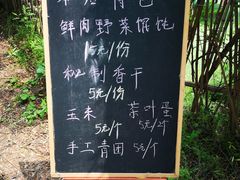 鲜肉野菜馄饨
15元/份
私制香干
5元/份
玉米 茶叶蛋
5元/个 5元/2个
手工青团 5元/个